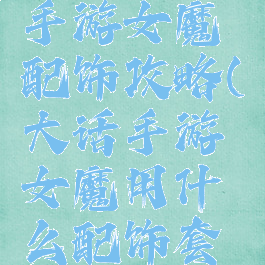 手游女魔
配饰攻略(
大话手游
女魔用什
么配饰套